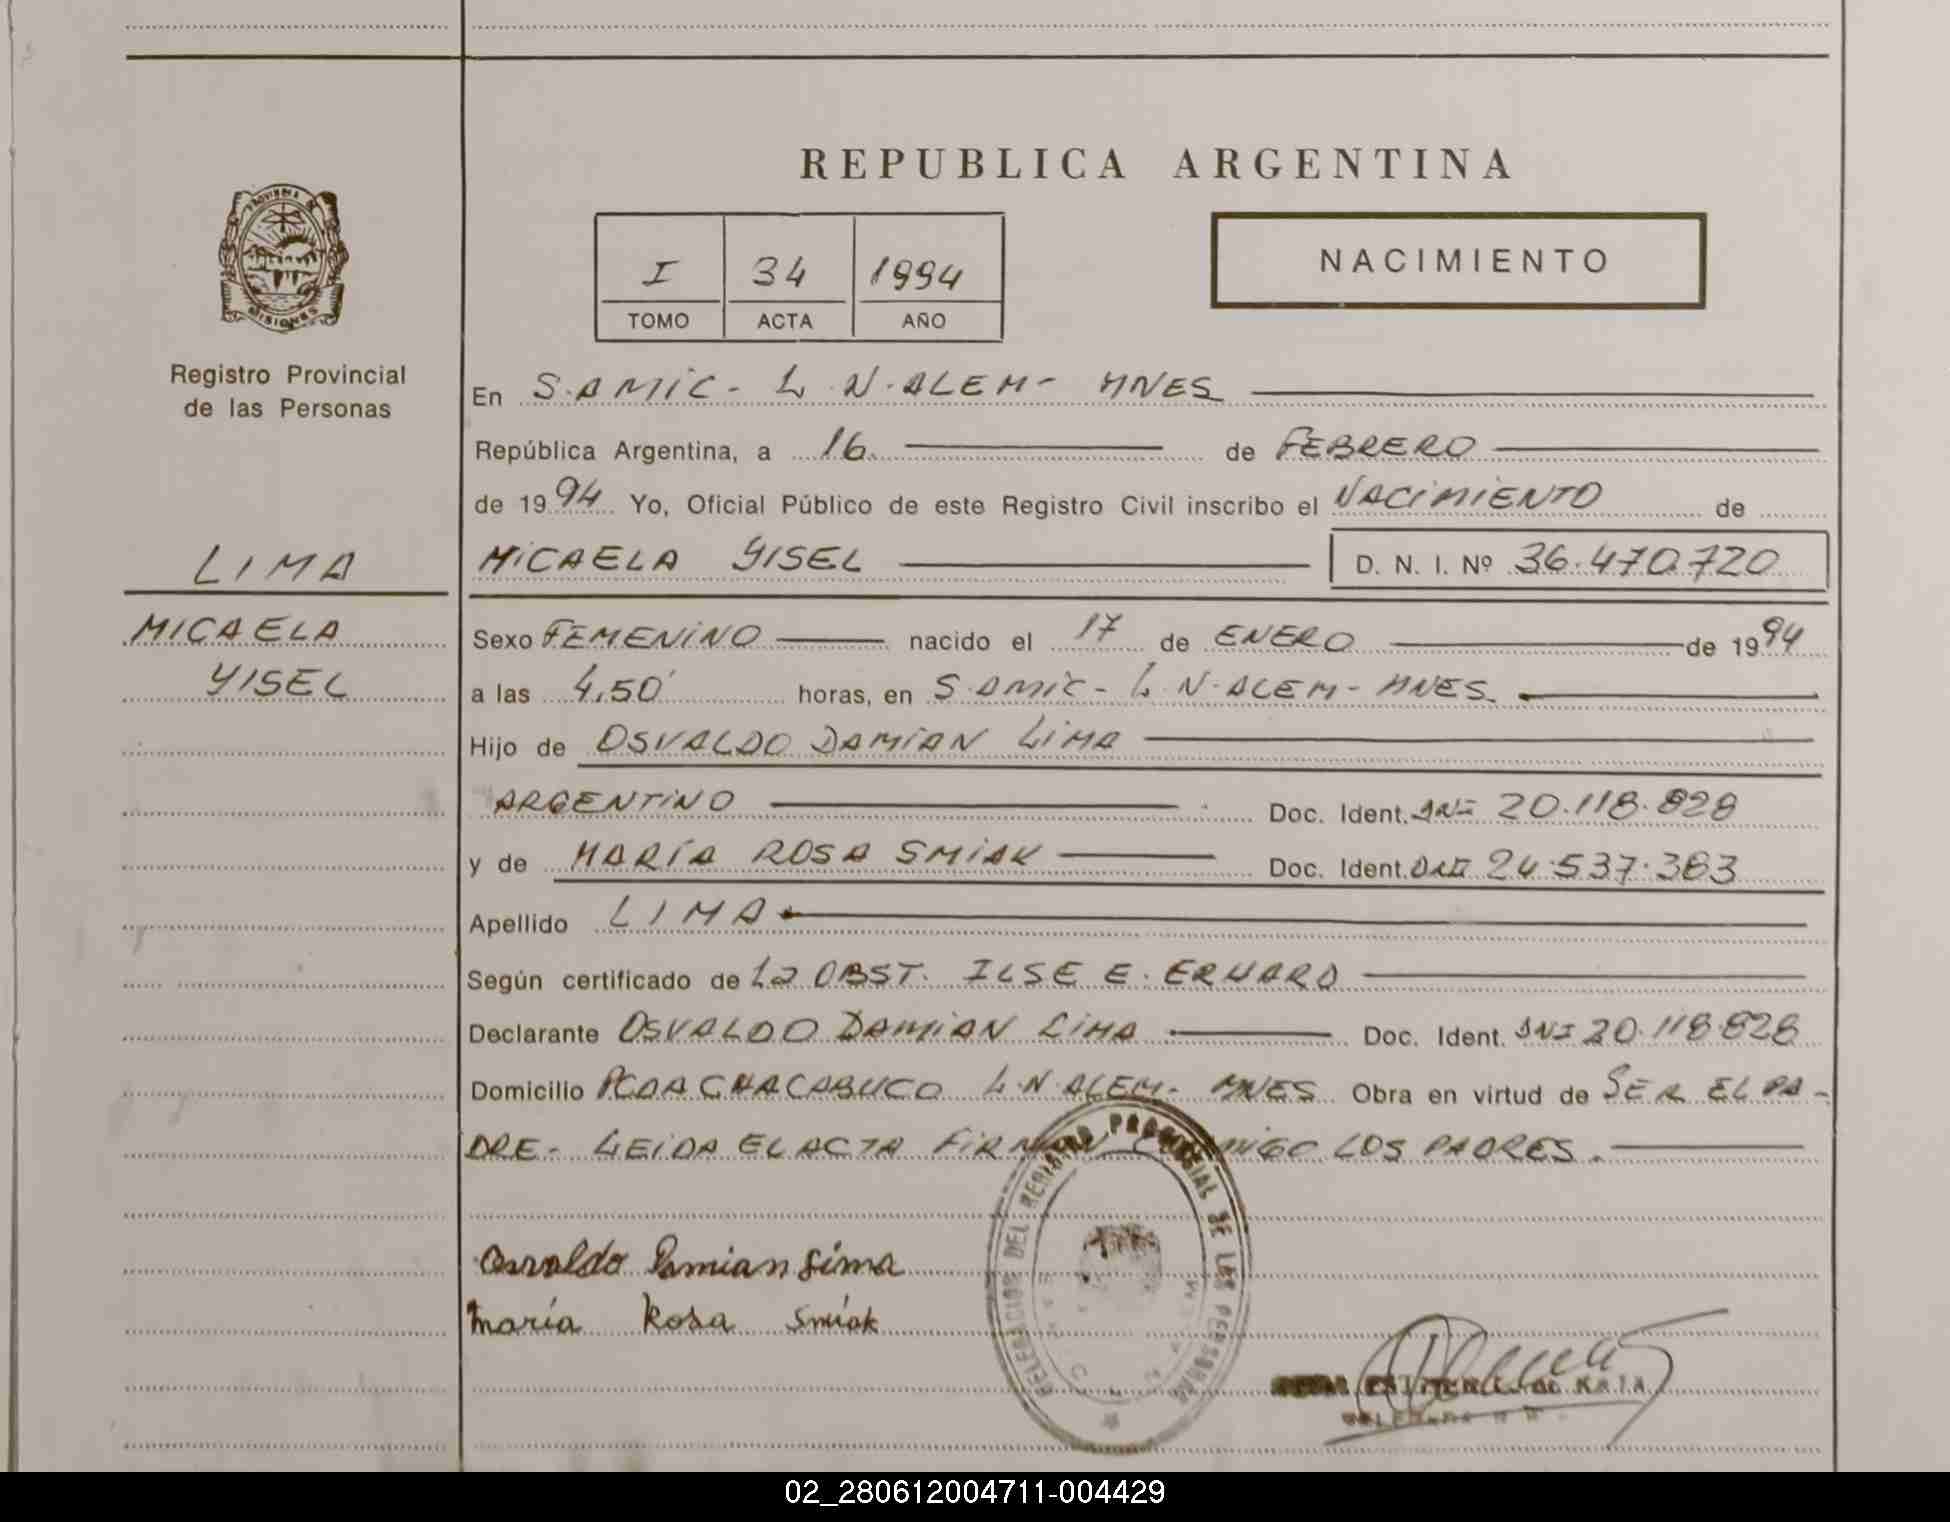 REPUBLICA ARGENTINA
PROVINCIA DE MISIONES
Registro Provincial
de las Personas
I 34 1994
TOMO ACTA AÑO
NACIMIENTO
En S.AMIC - L.N.ALEM - MNES
República Argentina, a 16 de FEBRERO
de 1994 Yo, Oficial Público de este Registro Civil inscribo el NACIMIENTO de
LIMA
MICAELA YISEL D. N. I. Nº 36.470.720
MICAELA
YISEL
Sexo FEMENINO nacido el 17 de ENERO de 1994
a las 4,50 horas, en S.AMIC - L.N.ALEM - MNES
Hijo de OSVALDO DAMIAN LIMA
ARGENTINO Doc. Ident. DNI 20.118.828
y de MARÍA ROSA SMIAK Doc. Ident. DNI 24.537.383
Apellido LIMA
Según certificado de La OBST. ILSE E.
Declarante OSVALDO DAMIAN LIMA Doc. Ident. DNI 20.118.828
Domicilio PCDA CHACABUCO L.N.ALEM - MNES Obra en virtud de SER EL PA-
DRE - LEIDA EL ACTA FIRMAN CONMIGO LOS PADRES.
DELEGACION DEL REGISTRO PROVINCIAL DE LAS PERSONAS
Osvaldo Damian Lima
María Rosa Smiak
02_280612004711-004429